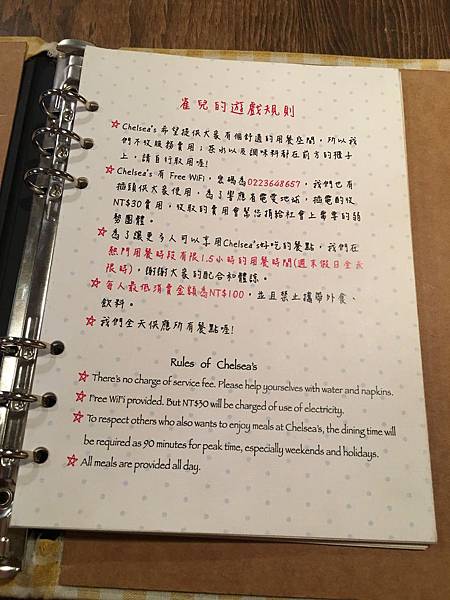 雀兒的遊戲規則
☆Chelsea's 希望提供大家有個舒適的用餐空間，所以我
們不收服務費用；茶水以及調味料都在前方的櫃子
上，請自行取用喔！
☆Chelsea's 有 Free WiFi，密碼為0223648657，我們也有
插頭供大家使用，為了響應節電愛地球，插電酌收
NT$30費用，收取的費用會幫您捐給社會上需要的弱
勢團體。
☆為了讓更多人可以享用Chelsea's好吃的餐點，我們在
熱門用餐時段有限1.5小時的用餐時間(週末假日全天
限時)，謝謝大家的配合和體諒。
☆每人最低消費金額為NT$100，並且禁止攜帶外食、
飲料。
☆我們全天供應所有餐點喔！
Rules of Chelsea's
☆There's no charge of service fee. Please help yourselves with water and napkins.
☆Free WiFi provided. But NT$30 will be charged of use of electricity.
☆To respect others who also wants to enjoy meals at Chelsea's, the dining time will
be required as 90 minutes for peak time, especially weekends and holidays.
☆All meals are provided all day.